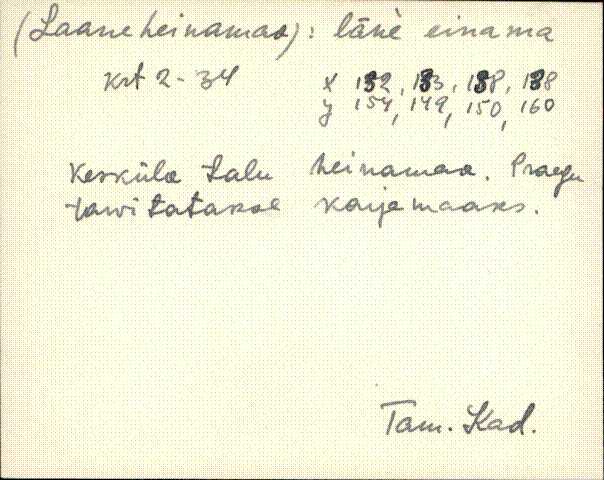 (Laane heinamaa): läńè einama
Krt 2-34 x 132, 133, 138, 138
y 154, 149, 150, 160
Kesküla talu heinamaa. Praegu
tarvitatakse karjamaaks.
Tam. Kad.